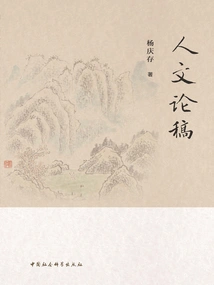 人文论稿
杨庆存 著
中国社会科学出版社